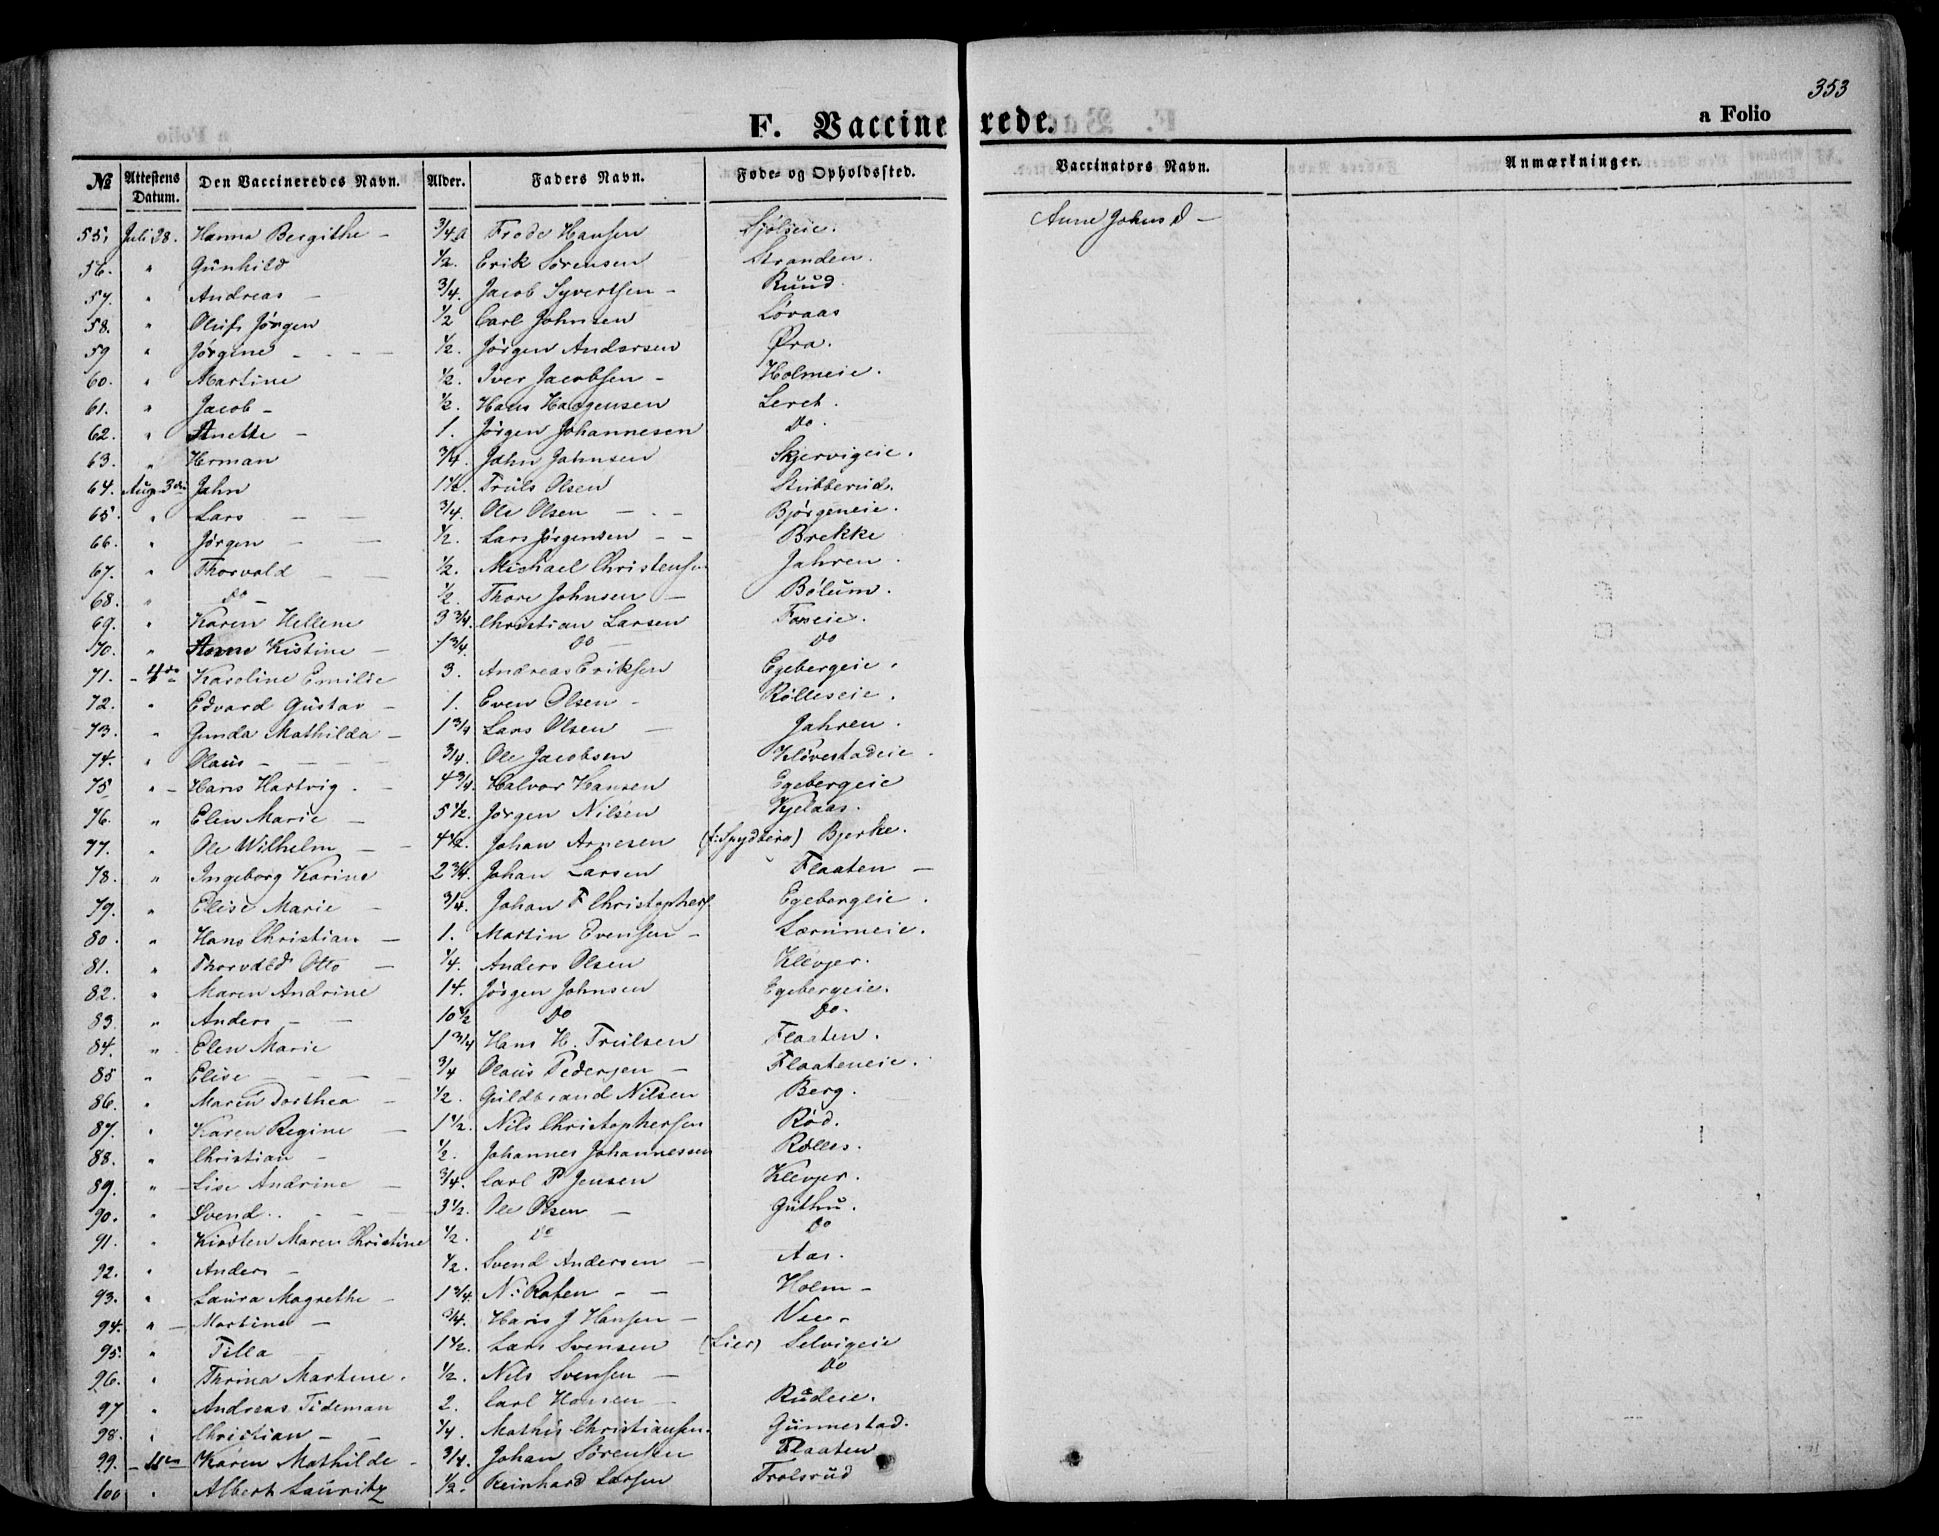 353
F. Vaccinerede.
a Folio
№ Attestens Datum. Den Vaccineredes Navn. Alder. Faders Navn. Føde- og Opholdssted. Vaccinators Navn. Anmærkninger.
55. Juli 28. Hanna Bergithe - 3/4 a Frode Hansen Sjølseie. Anne Johns d -
56. " Gunhild 1/2. Erik Sørensen Stranden.
57. " Andreas - 3/4. Jacob Syvertsen - Ruud.
58. " Oluf Jørgen 1/2 Carl Johnsen Løvaas
59 " Jørgine - - - 1/2. Jørgen Andersen Øra.
60. " Martine 1/2. Iver Jacobsen - Holmeie.
61. " Jacob - 1/2. Hans Haagensen Leret.
62. " Anette - 1. Jørgen Johannesen Do.
63. " Herman 3/4. John Johnsen Skjervigeie.
64. Aug. 3die John 1 1/2. Truls Olsen Stubberud.
65. " Lars - - 3/4. Ole Olsen - - Bjørgeneie.
66. " Jørgen - - 1/2. Lars Jørgensen - - Brekke
67. " Thorvald - - 1/2. Michael Christensen Jahren.
68. " Do - 1/2. Thore Johnsen - Bølum.
69. " Karen Hellene 3 3/4. Christian Larsen Foseie.
70. " Anne Kistine - 1 3/4. Do - Do
71. - 4de - Karoline Emilie 3. Andreas Eriksen Egebergeie.
72. " Edvard Gustav - 1. Even Olsen - Rølleseie.
73. " Gunda Mathilda - 1 3/4 Lars Olsen - Jahren.
74. " Olaus - - - - 3/4. Ole Jacobsen Kløvestadeie.
75 " - Hans Hartvig. - 4 3/4. Halvor Hansen Egebergeie
76. " Elen Marie - 5 1/2. Jørgen Nilsen Kjelaas.
77. " Ole Wilhelm - - 4 1/2. Johan Arnesen (f: Spydberg) Bjerke.
78. " Ingeborg Karine 2 3/4. Johan Larsen Flaaten -
79. " Elise Marie - 3/4. Johan F Christophers Egebergeie.
80. " Hans Christian - 1. Martin Evensen - Lærumeie.
81. " Thorvald Otto - 1/4. Anders Olsen Klevjer.
82. " Maren Andrine 14. Jørgen Johnsen Egebergeie.
83. " Anders - - 10 1/2 Do Do.
84. " Elen Marie 1 3/4 Hans H. Trulsen Flaaten.
85 " Elise - - - - 3/4 Olaus Pedersen - Flaateneie.
86. " Maren Dorthea - 1/2. Guldbrand Nilsen Berg.
87. " Karen Regine - 1 1/2. Nils Christophersen Rød.
88. " Christian - 1/2. Johannes Johannessen Rølles.
89. " - Lise Andrine - 3/4. Carl P Jensen Klevjer.
90. " Svend.. - - - 3 1/2. Ole Olsen - Guthu.
91. " Kirsten Maren Christine 1/2. Do Do
92. " Anders - 1/2. Svend Andersen - Aas.
93. " Laura Magrethe - 1 3/4. N: Rosen - - Holm -
94. " - Martine - 3/4. Hans J Hansen - Nee.
95. " Tilla - 1 1/2. Lars Svensen (Lier) Selvigeie
96. " Thrina Martine. 1/2. Nils Svensen - Do
97 " Andreas Tideman 2. Carl Hansen - Rudeie.
98. " Christian - - 1/4. Mathis Christiansen. Gunnestad.
99. - 11te - Karen Mathilde - 3/4. Johan Sørensen Flaaten
100 " Albert Lauritz 1/2. Reinhard Larsen Trolsrud